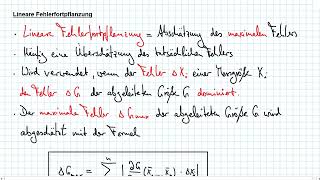 Lineare Fehlerfortpflanzung
• Lineare Fehlerfortpflanzung = Abschätzung des maximalen Fehlers
• Häufig eine Überschätzung des tatsächlichen Fehlers
• Wird verwendet, wenn der Fehler ΔXi einer Messgröße Xi
den Fehler ΔG der abgeleiteten Größe G dominiert.
• Der maximale Fehler ΔGmax der abgeleiteten Größe G wird
abgeschätzt mit der Formel
ΔGmax = Σ | ∂G